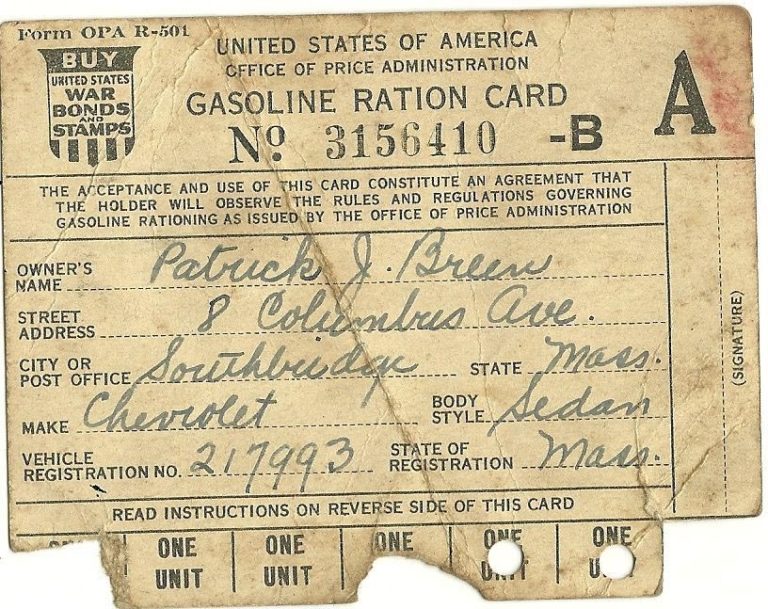 Form OPA R-501
BUY
UNITED STATES
WAR
BONDS
AND
STAMPS
UNITED STATES OF AMERICA
OFFICE OF PRICE ADMINISTRATION
GASOLINE RATION CARD
No. 3156410 -B
A
THE ACCEPTANCE AND USE OF THIS CARD CONSTITUTE AN AGREEMENT THAT
THE HOLDER WILL OBSERVE THE RULES AND REGULATIONS GOVERNING
GASOLINE RATIONING AS ISSUED BY THE OFFICE OF PRICE ADMINISTRATION
OWNER'S NAME Patrick J. Breen
STREET ADDRESS 8 Columbus Ave.
CITY OR POST OFFICE Southbridge STATE Mass.
MAKE Chevrolet BODY STYLE Sedan
VEHICLE REGISTRATION NO. 217993 STATE OF REGISTRATION Mass.
(SIGNATURE)
READ INSTRUCTIONS ON REVERSE SIDE OF THIS CARD
ONE ONE ONE ONE ONE
UNIT UNIT UNIT